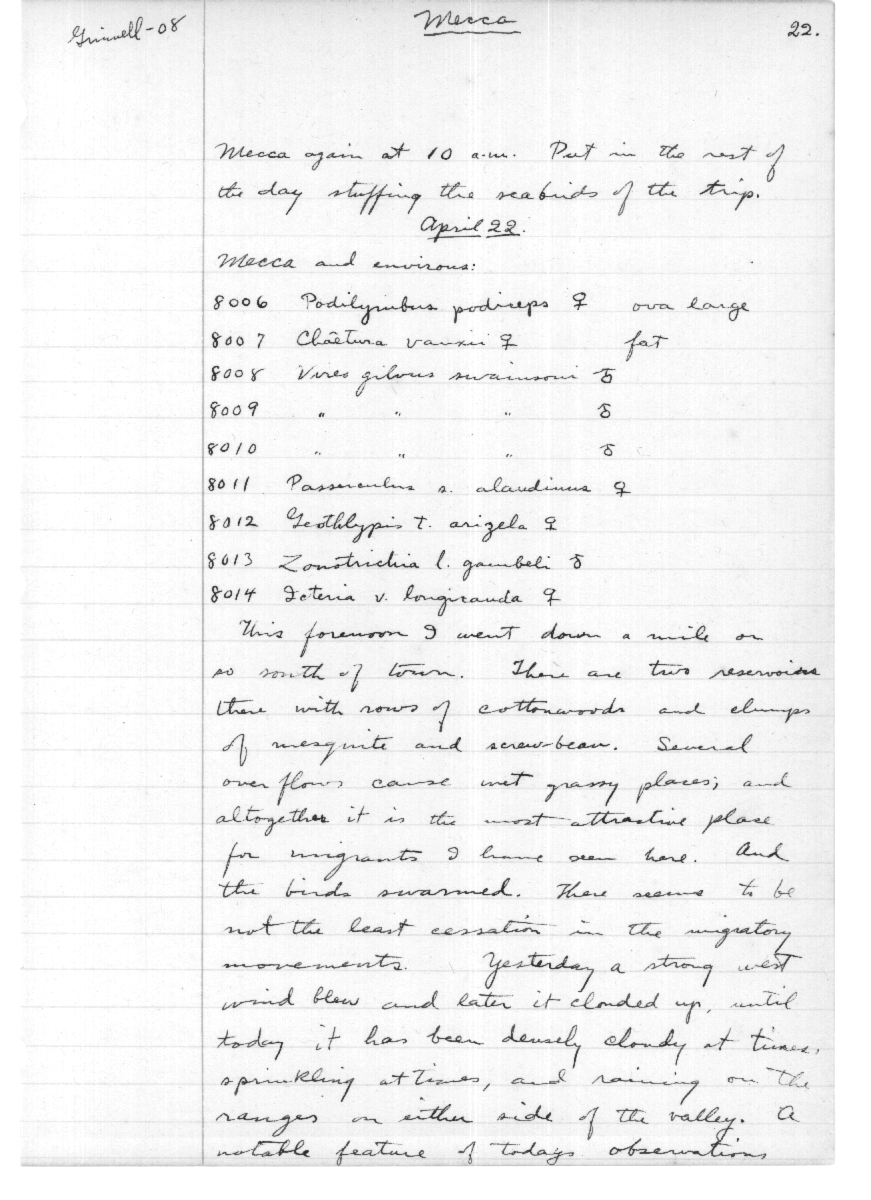 Grinnell-08
Mecca
22.
Mecca again at 10 a.m. Put in the rest of
the day stuffing the seabirds of the trip.
April 22.
Mecca and environs:
8006 Podilymbus podiceps ♀ ova large
8007 Chaetura vauxii ♀ fat
8008 Vireo gilvus swainsoni ♂
8009 " " " ♂
8010 " " " ♂
8011 Passerculus s. alaudinus ♀
8012 Geothlypis t. arizela ♀
8013 Zonotrichia l. gambeli ♂
8014 Icteria v. longicauda ♀
This forenoon I went down a mile or
so south of town. There are two reservoirs
there with rows of cottonwoods and clumps
of mesquite and screw-bean. Several
overflows cause wet grassy places; and
altogether it is the most attractive place
for migrants I have seen here. And
the birds swarmed. There seems to be
not the least cessation in the migratory
movements. Yesterday a strong west
wind blew and later it clouded up, until
today it has been densely cloudy at times,
sprinkling at times, and raining on the
ranges on either side of the valley. A
notable feature of todays observations